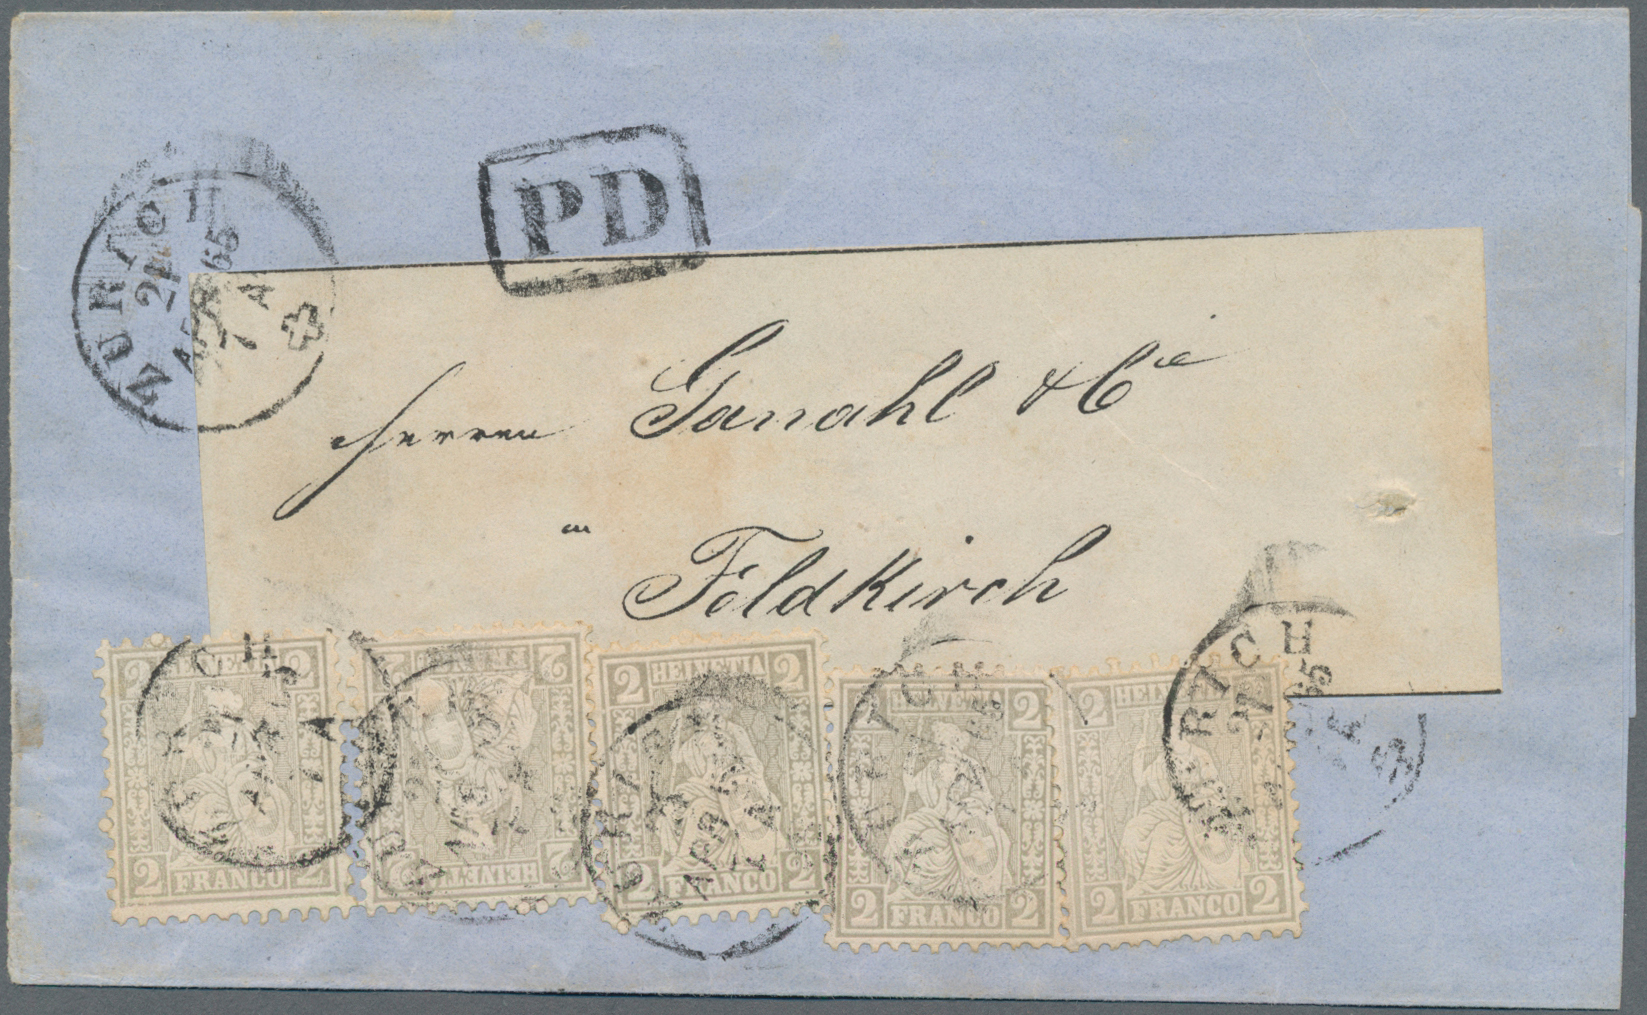 PD
ZURICH
21
APR 65
7 A
Herren Ganahl & Cie
in
Feldkirch
2 2
2 FRANCO 2
2 2
HELVETIA
2 HELVETIA 2
2 FRANCO 2
HELVETIA 2
2 FRANCO 2
2
2 FRANCO 2
ZURICH
APR
7 A
APR
7 A
APR
7 A
URICH
RICH
65